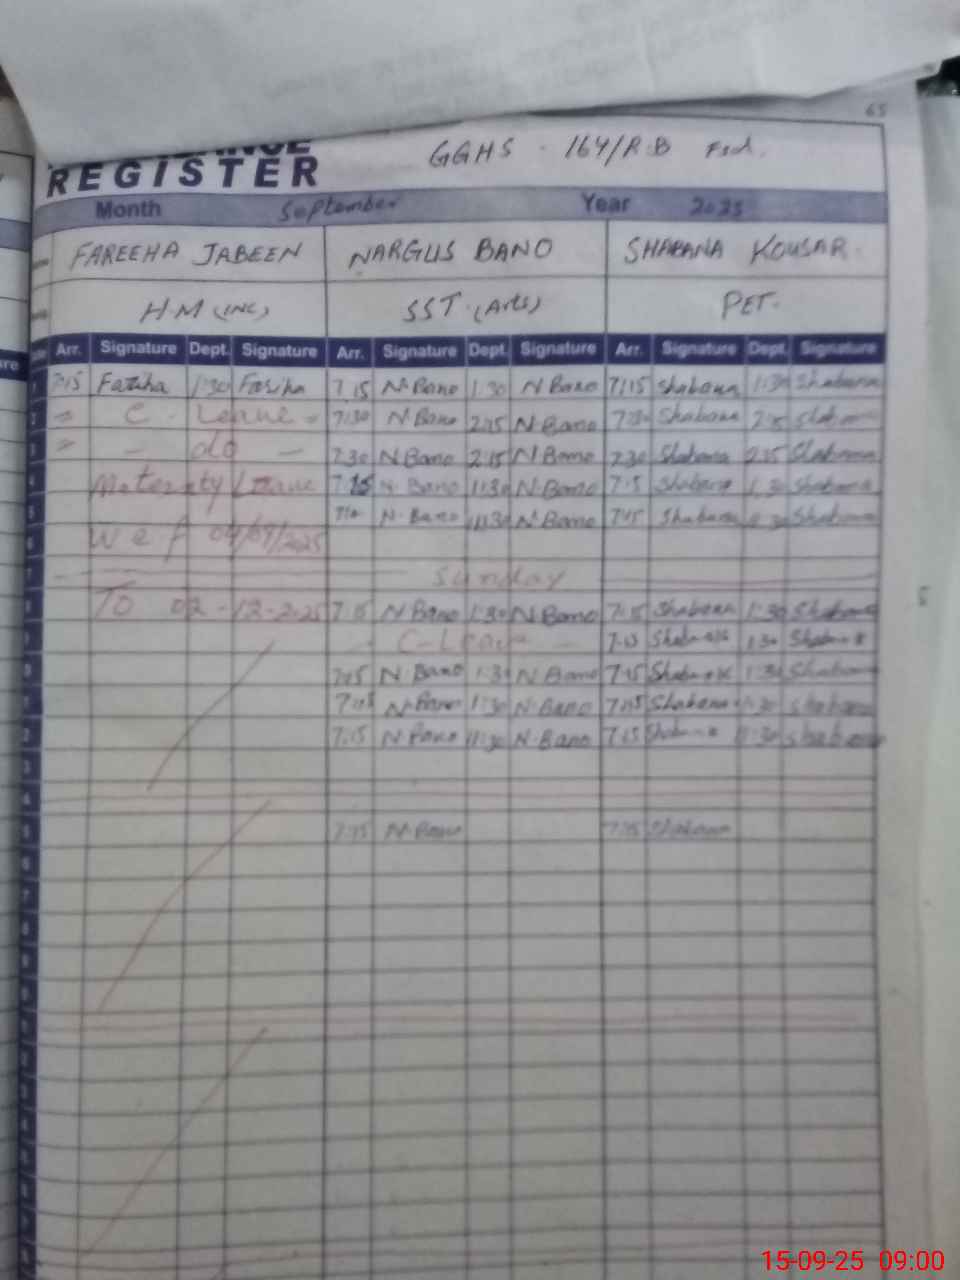 65
REGISTER GGHS - 164/R.B Fsd.
Month September Year 2025
FAREEHA JABEEN NARGUS BANO SHABANA KOUSAR.
H.M (INC) SST.(Arts) PET.
Arr. Signature Dept. Signature Arr. Signature Dept. Signature Arr. Signature Dept. Signature
1 7:15 Fariha 1:30 Fariha 7.15 N.Bano 1:30 N Bano 7:15 Shabana 1:30 Shabana
2 C. Leave 7:30 N Bano 2:15 N.Bano 7:30 Shabana 2:15 Shabana
3 - do - 7.30 N Bano 2:15 N Bano 7.30 Shabana 2:15 Shabana
4 Maternity Leave 7.15 N. Bano 1:30 N.Bano 7:15 Shabana 1.30 Shabana
5 N.Bano 1:30 N.Bano 7:15 Shabana 1:30 Shabana
6 w e f 04/09/2025
7 Sunday
8 To 02-12-2025 7:15 N Bano 1:30 N Bano 7:15 Shabana 1:30 Shabana
- C-Leave - 7:15 1:30
7:15 N.Bano 1:30 N Bano 7:15 1:30 Shabana
7:15 N.Bano 1:30 N.Bano 7:15 Shabana 1:30 Shabana
7:15 N Bano 1:30 N.Bano 7:15 1:30 Shabana
3
4
5 7:15 N.Bano 7:15 Shabana
6
7
8
15-09-25 09:00